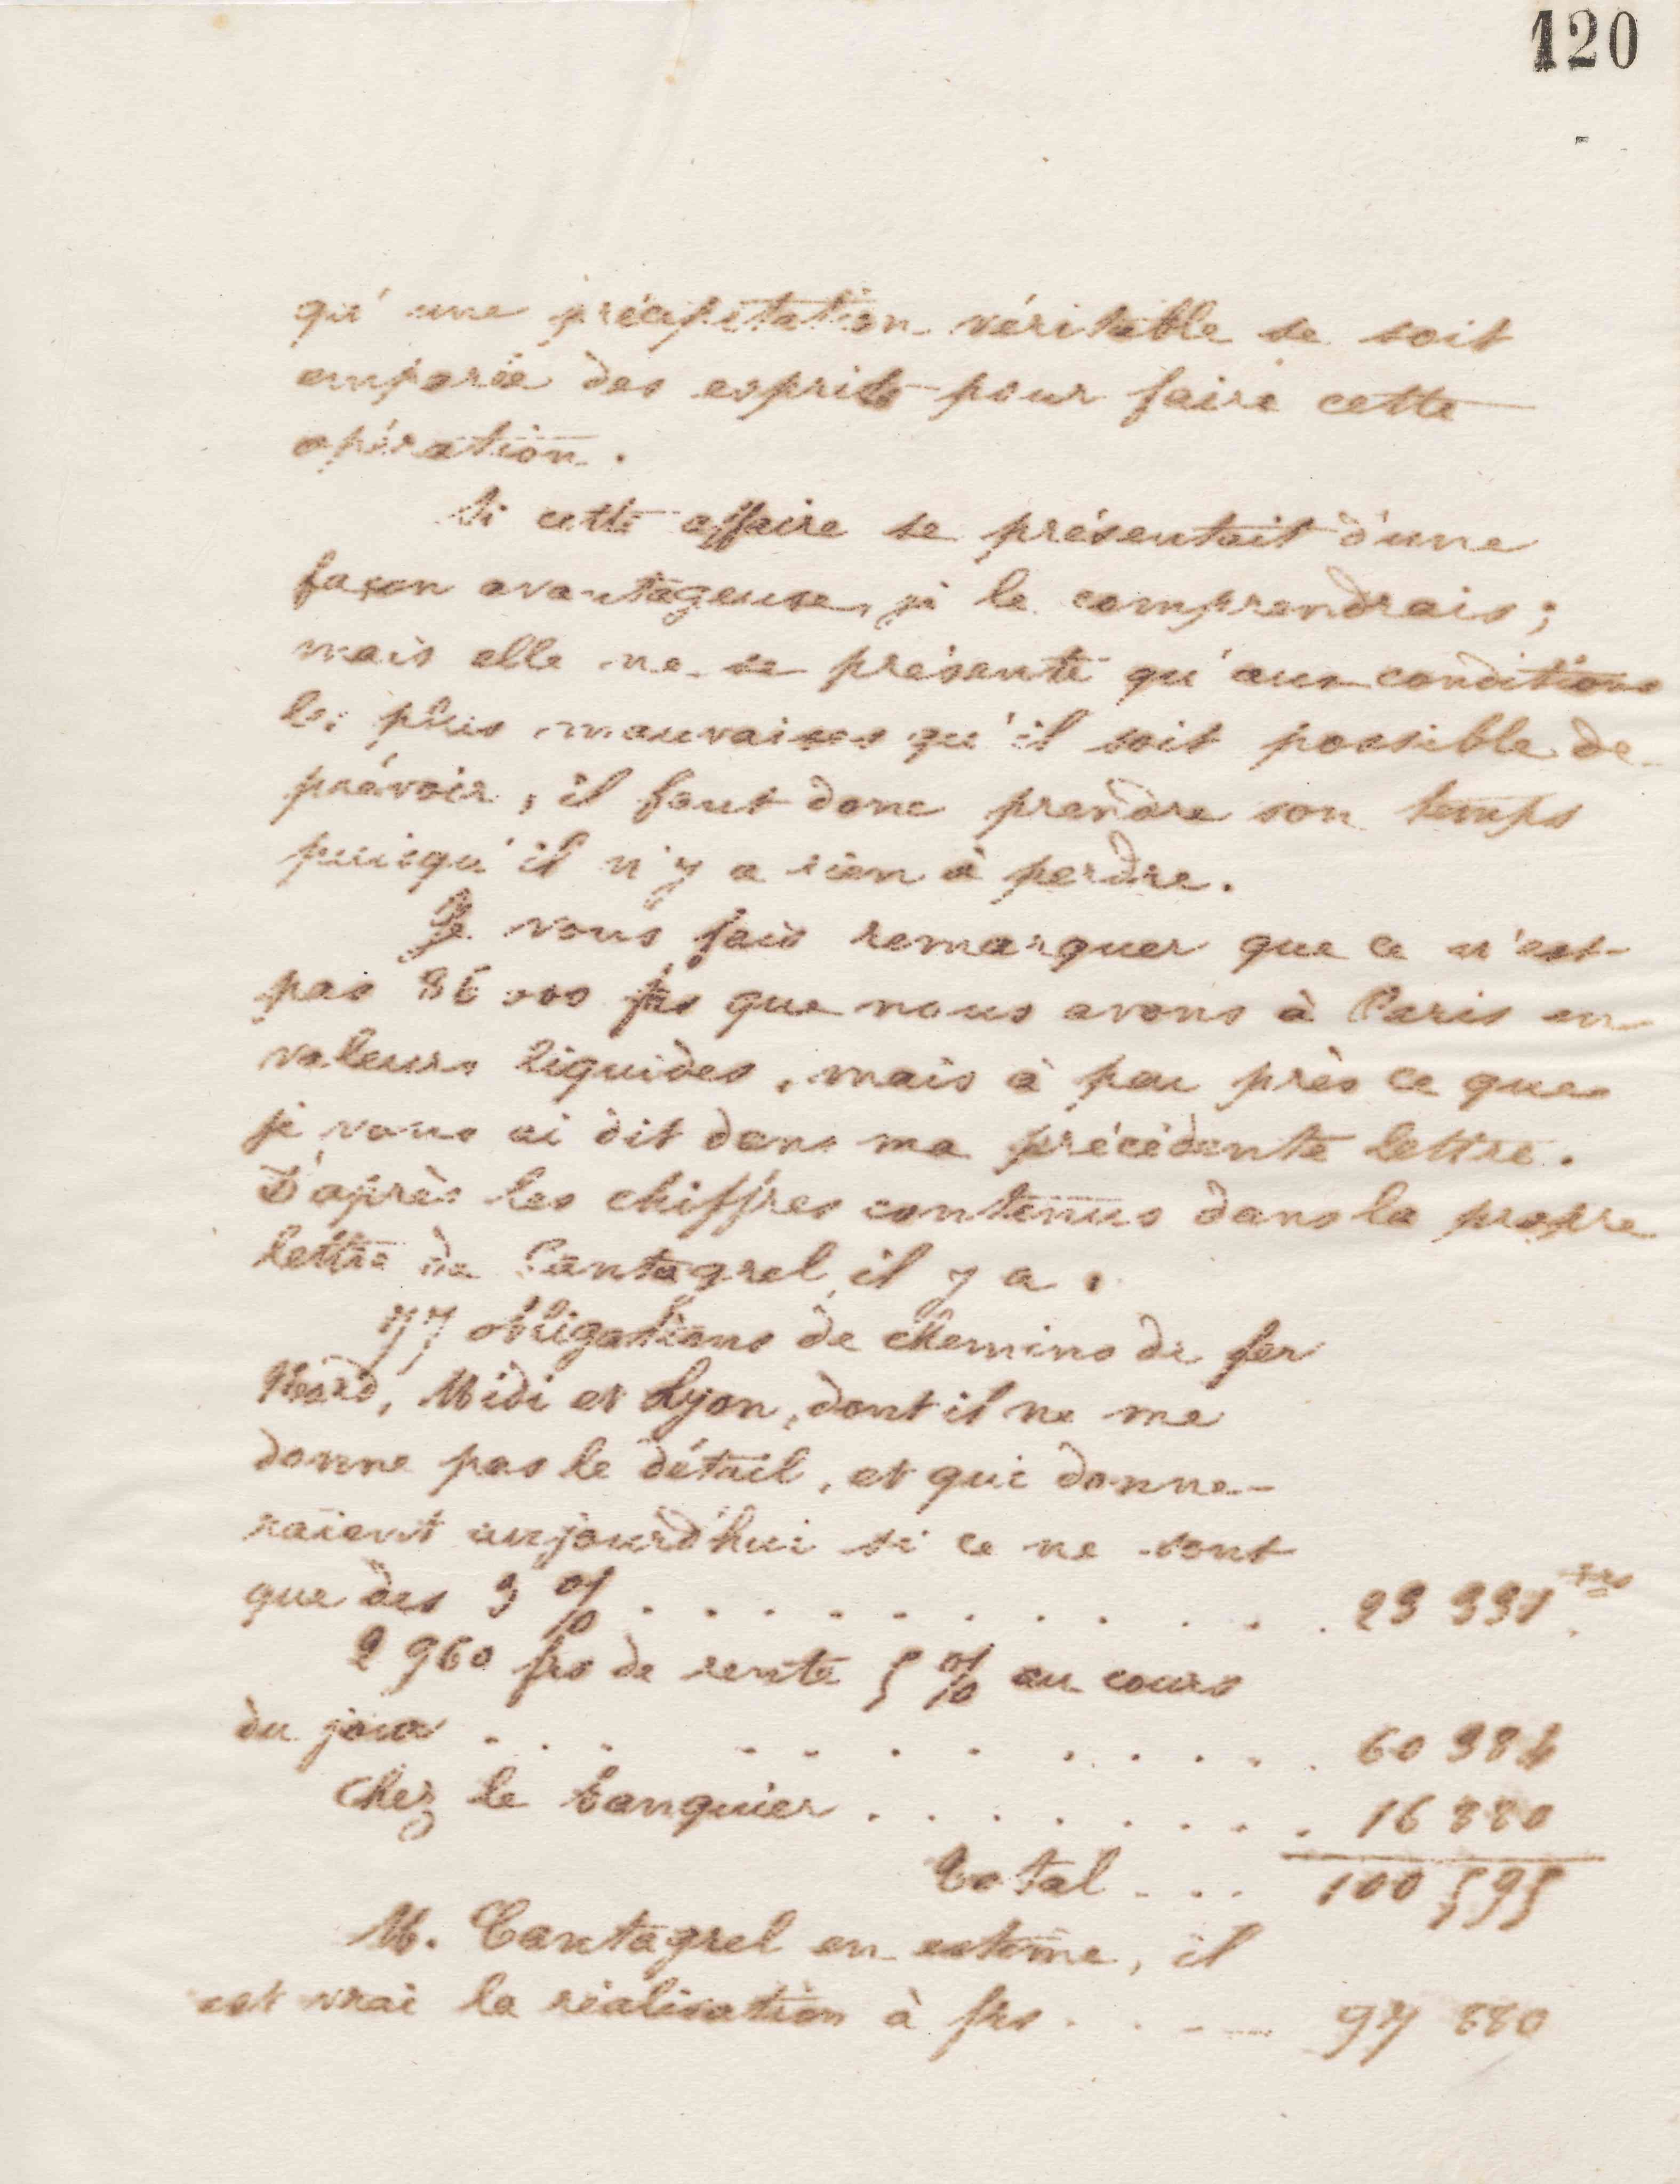 120
qu'une précipitation véritable se soit
emparée des esprits pour faire cette
opération.
Si cette affaire se présentait d'une
façon avantageuse, je le comprendrais ;
mais elle ne se présente qu'aux conditions
les plus mauvaises qu'il soit possible de
prévoir, il faut donc prendre son temps
puisqu'il n'y a rien à perdre.
Je vous fais remarquer que ce n'est
pas 86 000 frs que nous avons à Paris en
valeurs liquides, mais à peu près ce que
je vous ai dit dans ma précédente lettre.
D'après les chiffres contenus dans la propre
lettre de Cantagrel, il y a :
77 obligations de chemins de fer
Nord, Midi et Lyon, dont il ne me
donne pas le détail, et qui donne-
raient aujourd'hui si ce ne sont
que des 3 % . . . . . . . . . . . . 23 331 frs.
2 960 frs de rente 5 % au cours
du jour . . . . . . . . . . . . 60 384
Chez le banquier . . . . . . . . 16 880
Total . . . 100 595
M. Cantagrel en estime, il
est vrai la réalisation à frs . . . . 97 880